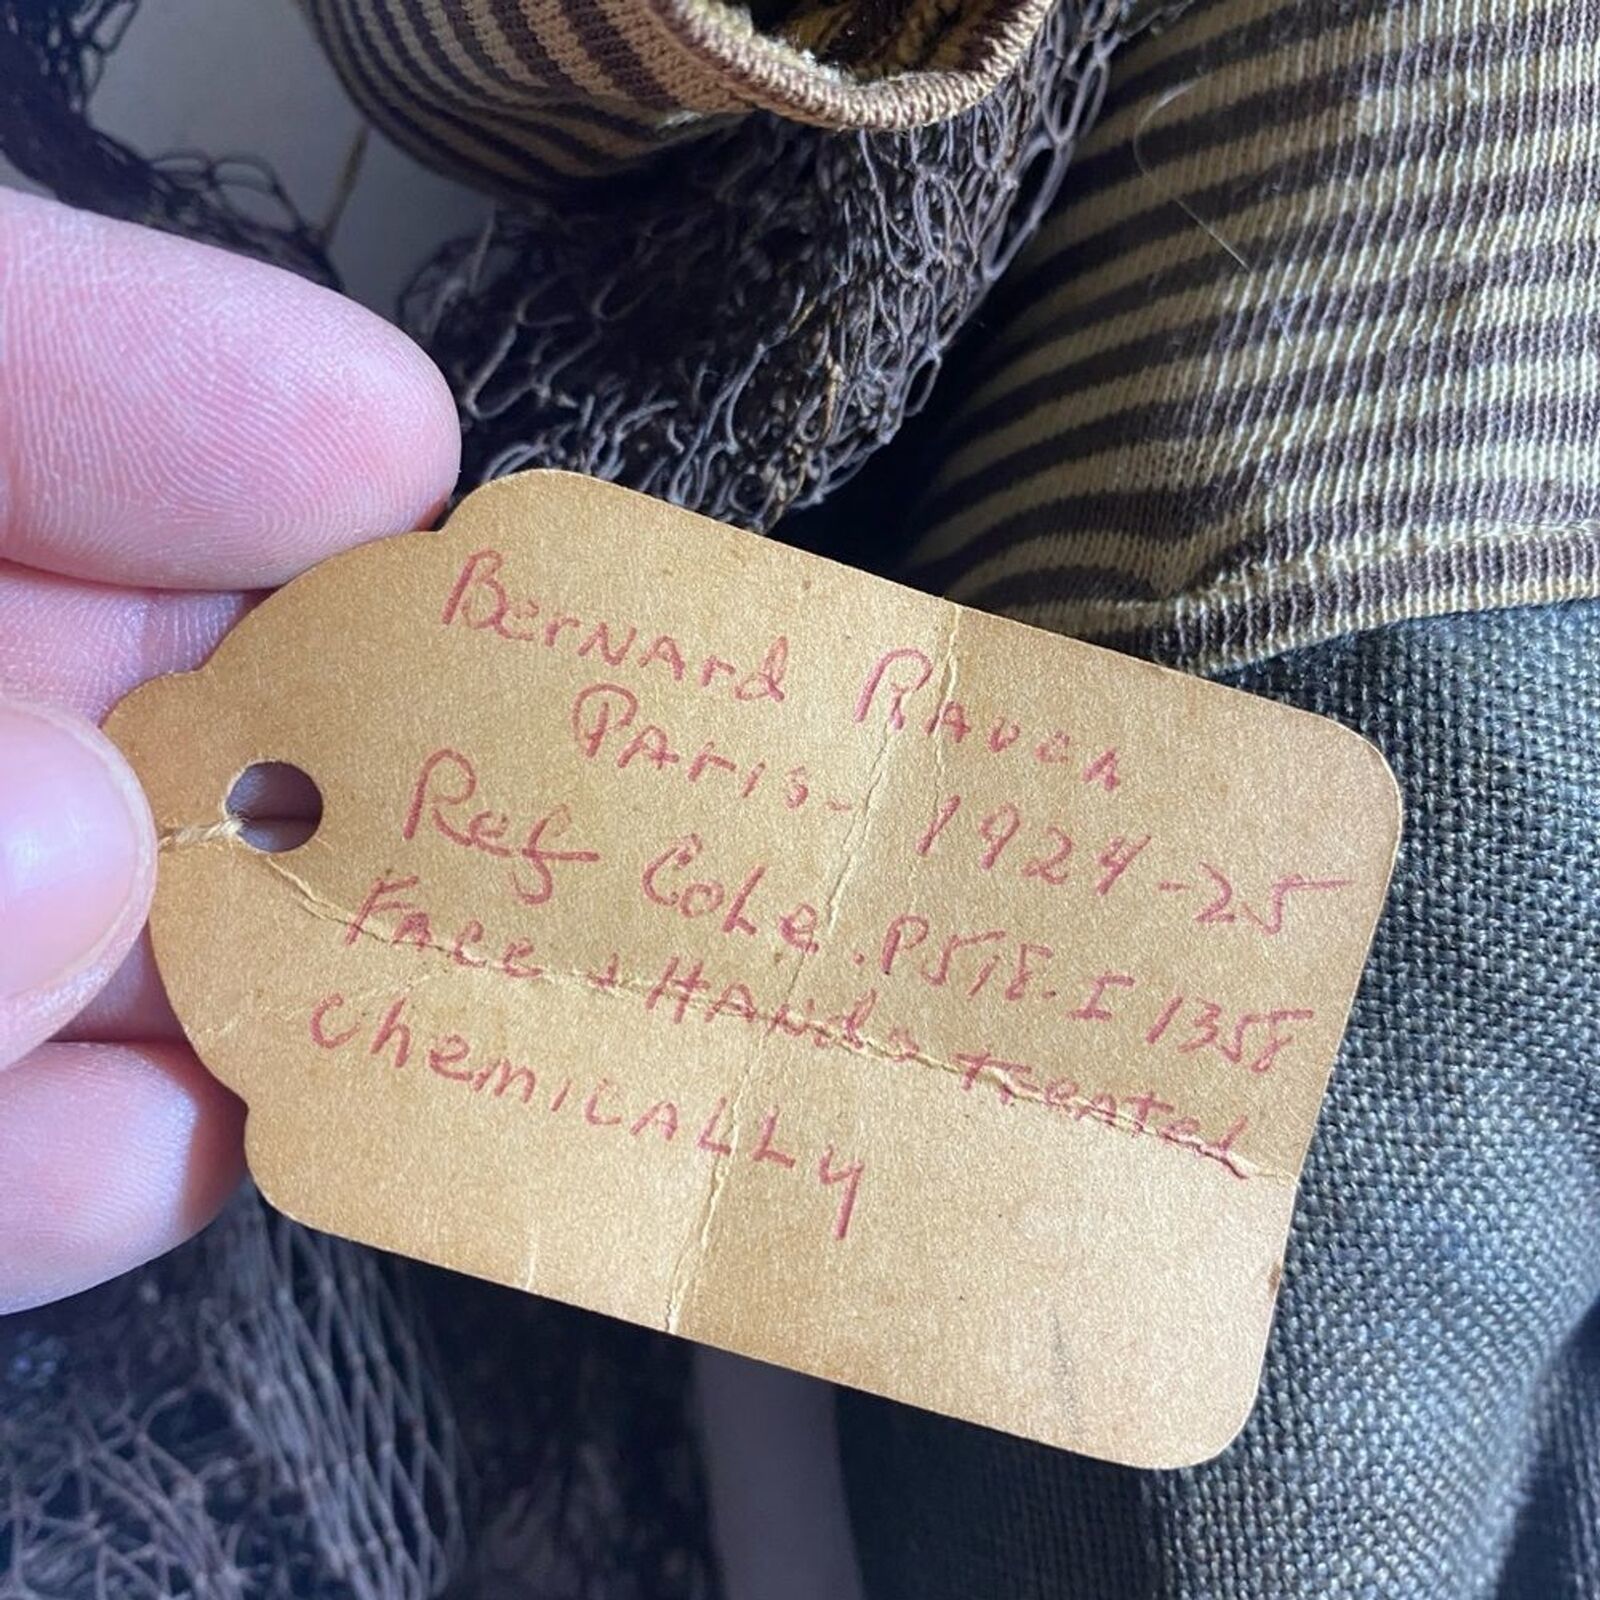 Bernard Raven
Paris- 1924-25
Ref Cole. P518. I 1358
Face + Hands treated
chemically